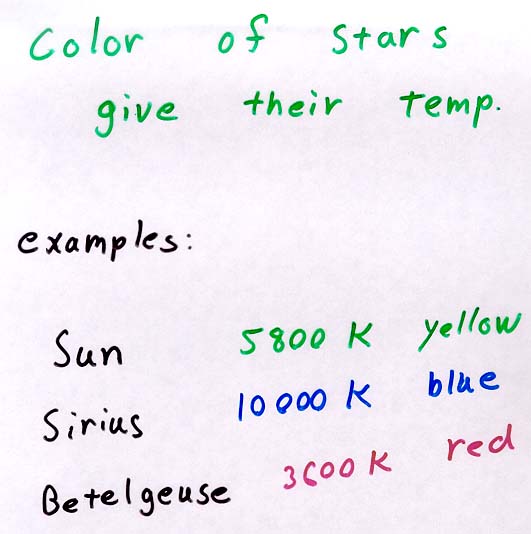 Color of stars
give their temp.
examples:
Sun 5800 K yellow
Sirius 10000 K blue
Betelgeuse 3600 K red